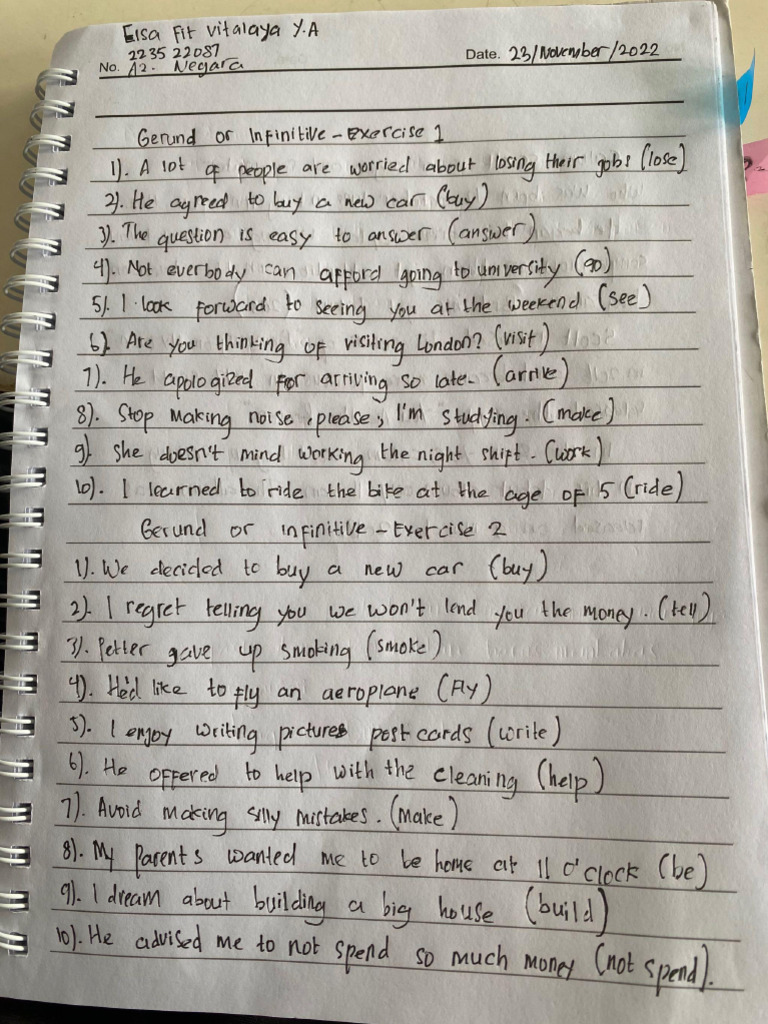 Elsa Fit Vitalaya Y.A
2235 22087
No. A2. Negara Date. 23/November/2022
Gerund or Infinitive - Exercise 1
1). A lot of people are worried about losing their jobs (lose)
2). He agreed to buy a new car (buy)
3). The question is easy to answer (answer)
4). Not everbody can afford going to university (go)
5). I look forward to seeing you at the weekend (see)
6). Are you thinking of visiting London? (visit)
7). He apologized for arriving so late. (arrive)
8). Stop making noise, please, I'm studying. (make)
9). She doesn't mind working the night shift. (work)
10). I learned to ride the bike at the age of 5 (ride)
Gerund or infinitive - Exercise 2
1). We decided to buy a new car (buy)
2). I regret telling you we won't lend you the money. (tell)
3). Petter gave up smoking (smoke)
4). He'd like to fly an aeroplane (Fly)
5). I enjoy writing pictures post cards (write)
6). He offered to help with the cleaning (help)
7). Avoid making silly mistakes. (Make)
8). My Parents wanted me to be home at 11 o'clock (be)
9). I dream about building a big house (build)
10). He advised me to not spend so much money (not spend).